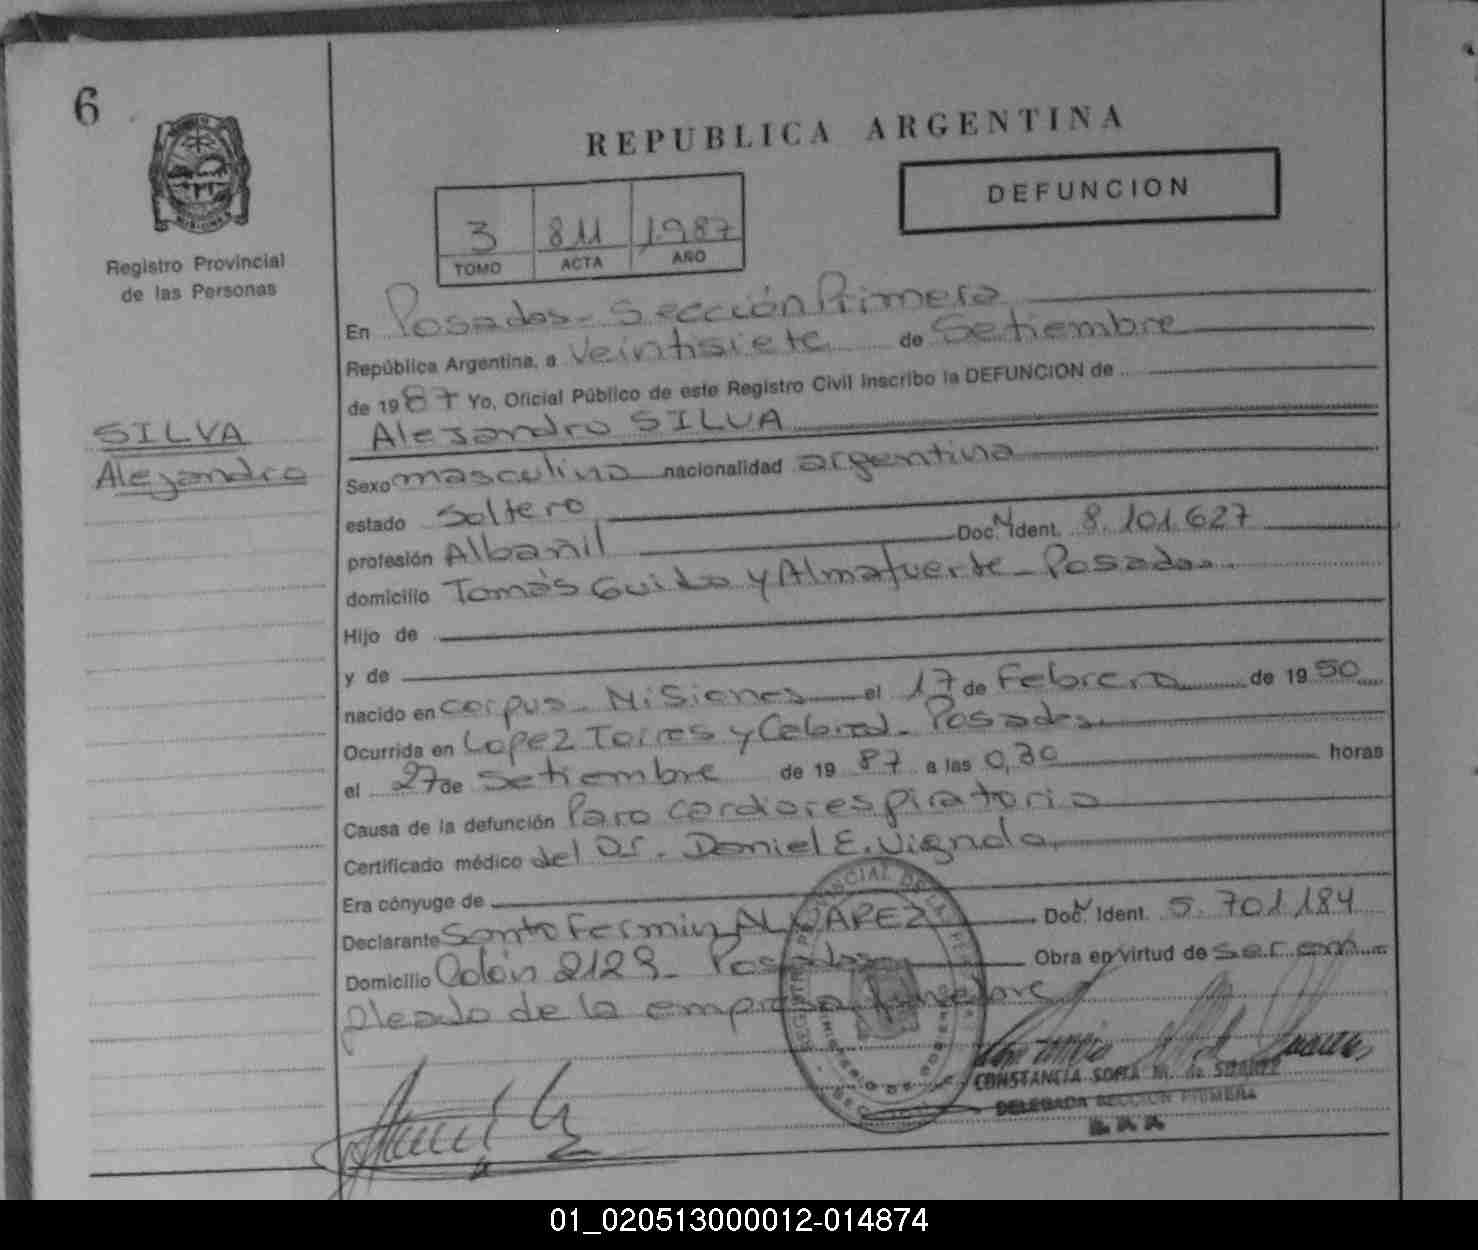 6
Registro Provincial
de las Personas
SILVA
Alejandro
REPUBLICA ARGENTINA
DEFUNCION
3 811 1987
TOMO ACTA AÑO
En Posadas - Sección Primera
República Argentina, a Veintisiete de Setiembre
de 1987 Yo, Oficial Público de este Registro Civil inscribo la DEFUNCION de
Alejandro SILVA
Sexo masculino nacionalidad argentina
estado Soltero
profesión Albañil Doc. N Ident. 8.101.627
domicilio Tomás Guido y Almafuerte - Posadas.
Hijo de
y de
nacido en Corpus - Misiones el 17 de Febrero de 1950
Ocurrida en Lopez Torres y Cabral - Posadas.
el 27 de Setiembre de 1987 a las 0,30 horas
Causa de la defunción Paro cardiorespiratorio
Certificado médico del Dr. Daniel E. Vignola.
Era cónyuge de
Declarante Santo Fermin ALVAREZ Doc. N Ident. 5.701.184
Domicilio Colón 2129 - Posadas Obra en virtud de ser em-
pleado de la empresa fúnebre
CONSTANCIA SOFIA M. de SUAREZ
DELEGADA SECCION PRIMERA
01_020513000012-014874